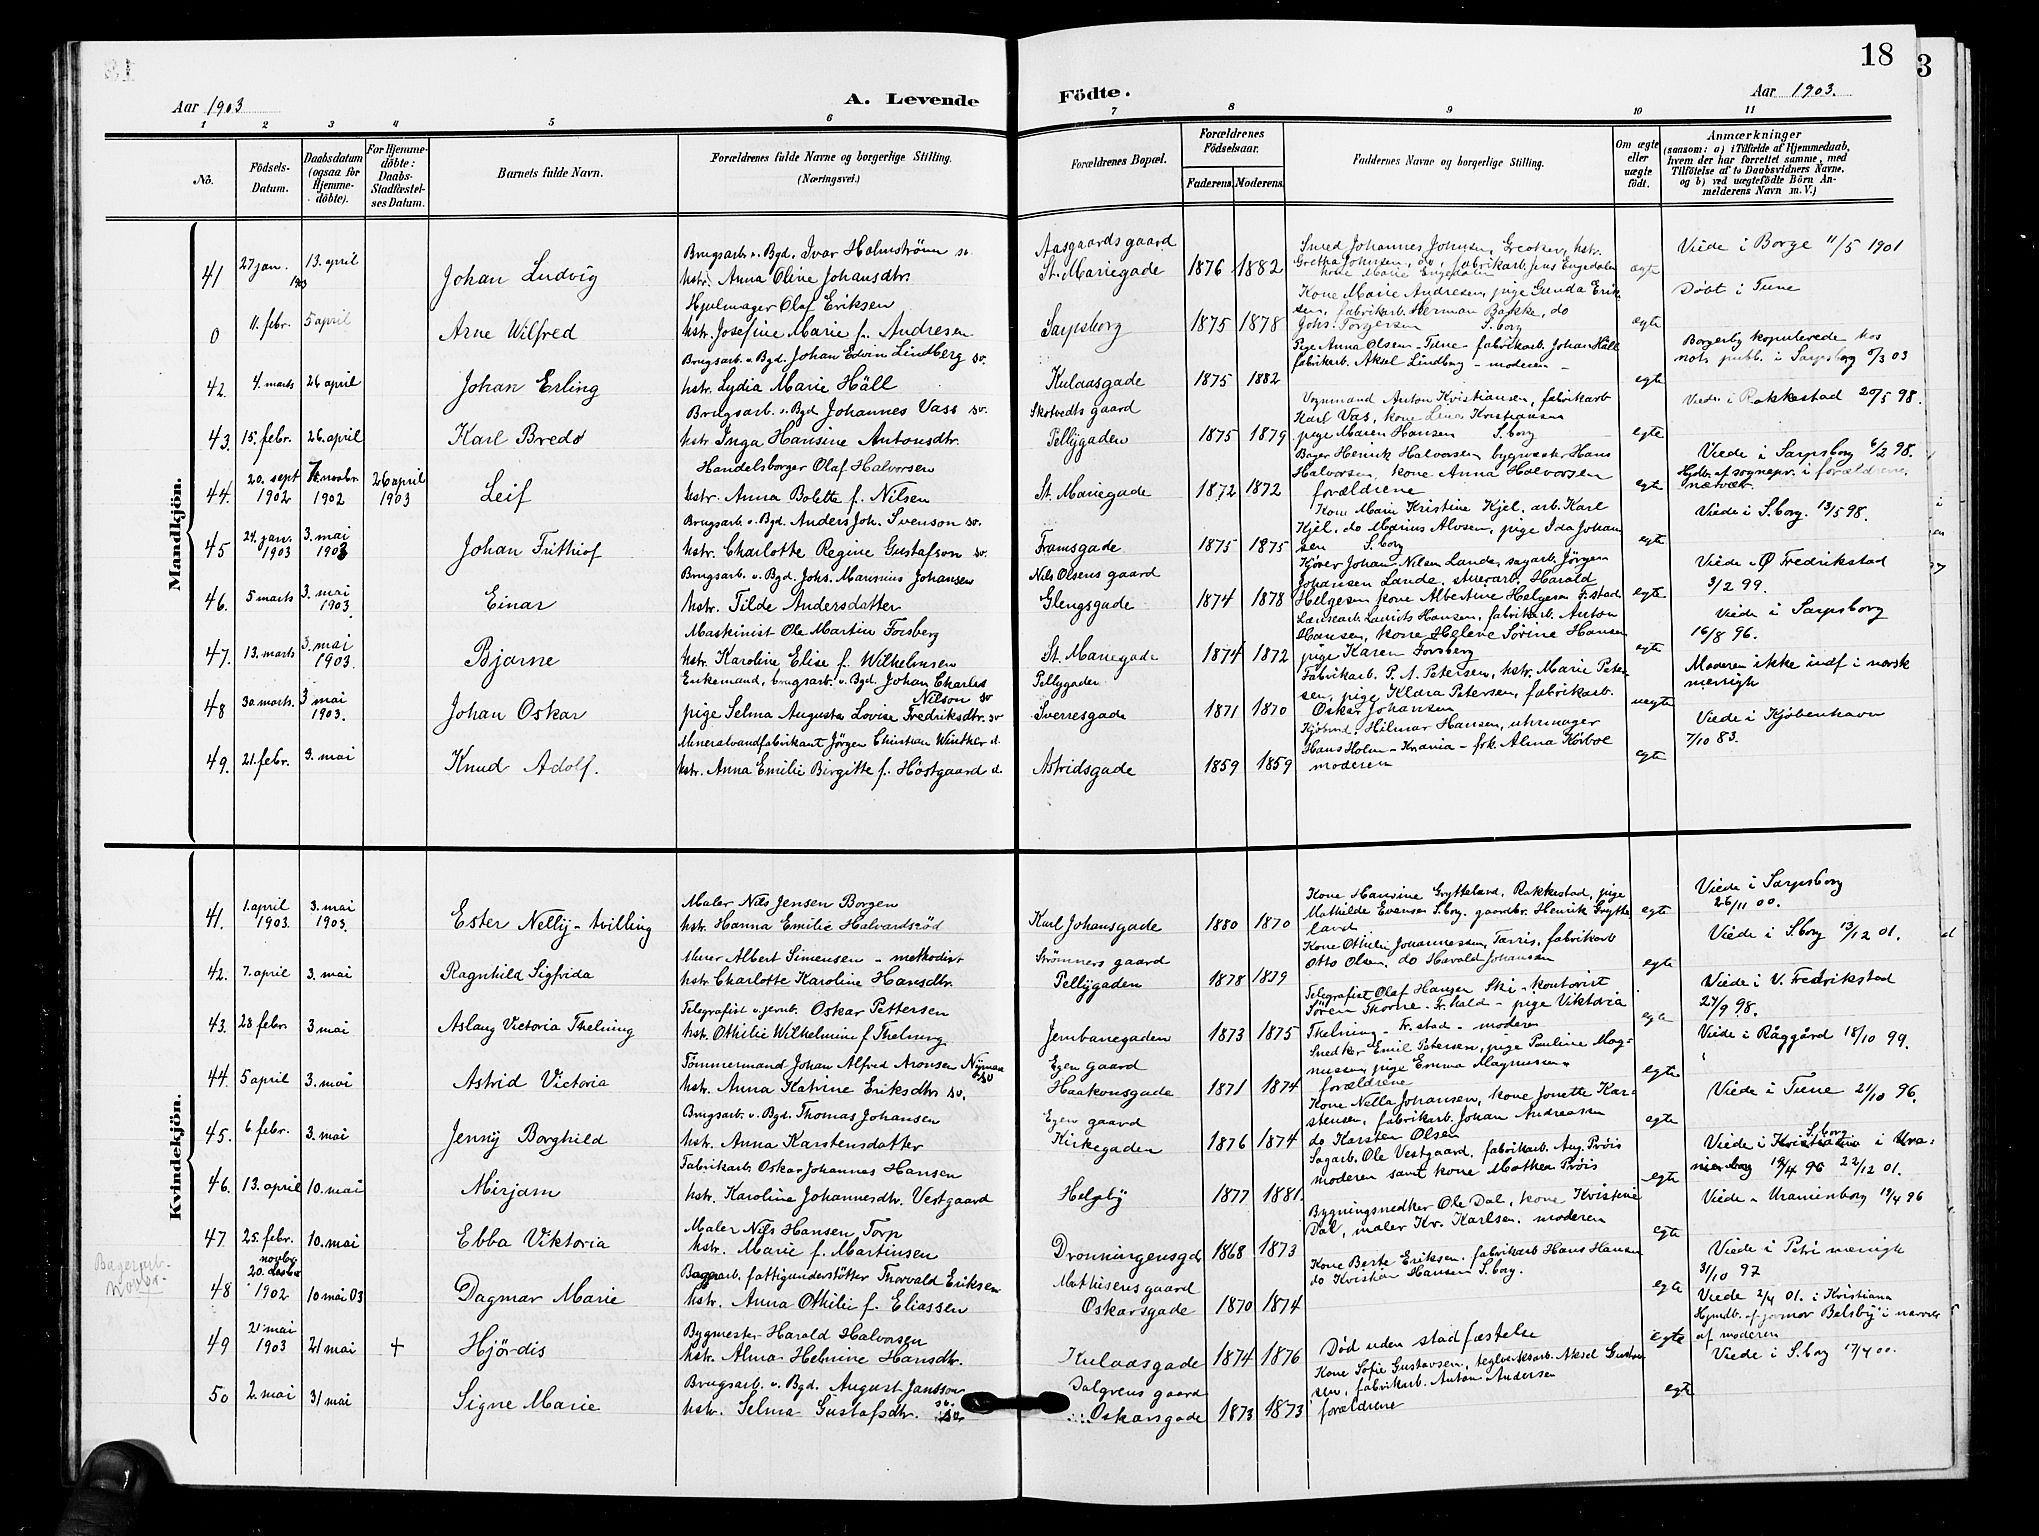 18
3
Aar 1903
A. Levende
Födte.
Aar 1903.
1 2 3 4 5 6 7 8 9 10 11
No.
Födsels-
Datum.
Daabsdatum
(ogsaa for
Hjemme-
döbte).
For Hjemme-
döbte:
Daabs-
Stadfæstel-
ses Datum.
Barnets fulde Navn.
Forældrenes fulde Navne og borgerlige Stilling.
(Næringsvei.)
Forældrenes Bopæl.
Forældrenes
Födselsaar.
Faderens.
Moderens.
Faddernes Navne og borgerlige Stilling.
Om ægte
eller
uægte
födt.
Anmærkninger
(saasom: a) i Tilfælde af Hjemmedaab,
hvem der har forrettet samme, med
Tilföielse af to Daabsvidners Navne,
og b) ved uægtefödte Börn An-
melderens Navn m. V.)
Mandkjön.
41 27 jan. 13. april
1903
Johan Ludvig
Brugsarb. v. Bgd. Ivar Holmströen sv.
hstr. Anna Olive Johansdtr.
Aasgaards gaard
St. Mariegade
1876 1882
Smed Johannes Johnsen, Greaker, hstr.
Gretha Johnsen, do, fabrikarb. Jens Engedalen
kone Marie Engedalen
ægte
Viede i Borge 11/5 1901
0 11. febr. 5 april
Arne Wilfred
Hjulmager Olaf Eriksen
hstr. Josefine Marie f. Andresen
Sarpsborg
1875 1878
Kone Marie Andresen, pige Gunda Erik-
sen, fabrikarb. Herman Bakke, do
Johs. Torgersen S.borg
egte
Döbt i Tune
42. 4. marts 26 april
Johan Erling
Brugsarb. v. Bgd. Johan Edvin Lindberg sv.
hstr. Lydia Marie Häll
Kulaasgade
1875 1882
Pige Anna Olsen - Tune - fabrikarb. Johan Häll
fabrikarb. Aksel Lindberg - moderen -
egte
Borgerlig kopulerede hos
not. publ. i Sarpsborg 5/3 03
43. 15. febr. 26. april
Karl Bredo
Brugsarb. v. Bgd Johannes Vass sv.
hstr. Inga Hansine Antonsdtr.
Skotvedts gaard
Pellygaden
1875 1879
Vognmand Anton Kristiansen, fabrikarb
Karl Vas, kone Lina Kristiansen
pige Maren Hansen S.borg
egte
Viede i Rakkestad 20/5 98.
44. 20. sept 7. novbr. 26 april
1902 1902 1903
Leif
Handelsborger Olaf Halvorsen
hstr. Anna Bolette f. Nilsen
St. Mariegade
1872 1872
Bager Henrik Halvorsen bygmester Hans
Halvorsen, kone Anna Halvorsen
forældrene
egte
Viede i Sarpsborg 6/2 98.
Hjdb. af sognepr. i forældrenes
nærvær.
45 24. jan. 3. mai
1903 1903
Johan Frithiof
Brugsarb. v. Bgd. Anders Joh. Svenson sv.
hstr. Charlotte Regine Gustafson sv.
Framsgade
1875 1875
Kone Marie Kristine Kjel, arb. Karl
Kjel, do Marius Alvsen, pige Ida Johan
sen S.borg
egte
Viede i S.borg. 13/5 98.
46. 5 marts 3. mai
1903.
Einar
Brugsarb. v. Bgd. Johs. Mausius Johansen
hstr. Tilde Andersdatter
Nils Olsens gaard
Glengsgade
1874 1878
Kjører Johan Nilsen Lande, sagarb. Jørgen
Johansen Lande, stuerarb. Harald
Helgesen kone Albertine Helgesen F.stad
egte
Viede i Ø Fredrikstad
3/2 99.
47. 13. marts 3. mai
1903.
Bjarne
Maskinist Ole Martin Forsberg
hstr. Karoline Elise f. Wilhelmsen
St. Mariegade
1874 1872
Lænsearb. Laurits Hansen, fabrikarb. Anton
Hansen, kone Helene Sørine Hansen
pige Karen Forsberg
egte
Viede i Sarpsborg
16/8 96.
48 30. marts. 3 mai
1903.
Johan Oskar
Enkemand, brugsarb. v. Bgd. Johan Charles
Nilson sv
pige Selma Augusta Lovise Fredriksdtr. sv
Pellygaden
Sverresgade
1871 1870
Fabrikarb. P. A. Petersen, hstr. Marie Peter-
sen, pige Klara Petersen, fabrikarb.
Oskar Johansen
uegte
Moderen ikke indf i norsk
menigh
49. 21. febr. 3. mai
Knud Adolf.
Mineralvandfabrikant Jörgen Christian Winther d.
hstr. Anna Emilie Birgitte f. Höstgaard d.
Astridsgade
1859 1859
Kjøbmd. Hilmar Hansen, uhrmager
Hans Holm - Krania - frk. Alma Kørboe
moderen
egte
Viede i Kjøbenhavn
7/10 83.
Kvindekjön.
41. 1. april 3. mai
1903. 1903.
Ester Nelly - tvilling
Maler Nils Jensen Borgen
hstr. Hanna Emilie Halvardsröd
Karl Johansgade
1880 1870
Kone Hansine Grytteland, Rakkestad, pige
Mathilde Evensen S.borg. gaardbr. Henrik Grytte
land
egte
Viede i Sarpsborg
26/11 00.
42. 7. april 3. mai
Ragnhild Sigfrida
Murer Albert Simensen - methodist
hstr. Charlotte Karoline Hansdtr.
Strømners gaard
Pellygaden
1878 1879
Kone Othilie Johannessen, Tarris, fabrikarb
Otto Olsen, do Harald Johansen
egte
Viede i S.borg 13/12 01.
43. 28 febr. 3. mai
Aslaug Victoria Thelning
Telegrafist v. jernb. Oskar Pettersen
hstr. Othilie Wilhelmine f Thelning
Jernbanegaden
1873 1875
Telegrafist Olaf Hansen Ski - kontorist
Sören Thorne - Fr.hald - pige Viktoria
Thelning - Fr.stad - moderen
egte
Viede i V. Fredrikstad
27/9 98.
44. 5 april 3. mai
Astrid Victoria
Tömmermand Johan Alfred Aronsen Nyman
hstr. Anna Katrine Eriksdtr sv.
Egen gaard
Haakonsgade
1871 1874
Snedker Emil Petersen, pige Pauline Mag-
nussen, pige Emma Magnussen
forældrene
egte
Viede i Råggård 18/10 99.
45. 6 febr. 3. mai
Jenny Borghild
Brugsarb. v. Bgd. Thomas Johansen
hstr. Anna Karstensdatter
Egen gaard
Kirkegaden
1876 1874
Kone Nella Johansen, kone Jonette Kar-
stensen, fabrikarb. Johan Andreasen
do Karsten Olsen
egte
Viede i Tune 21/10 96.
46. 13. april 10. mai
Mirjam
Fabrikarb Oskar Johannes Hansen
hstr. Karoline Johannesdtr. Vestgaard
Helgeby
1877 1881.
Sagarb. Ole Vestgaard, fabrikarb. Aug. Prøis
moderen samt kone Mathea Prøis
egte
S.borg
Viede i Kristiania i Ura-
nienborg 19/4 96 22/12 01.
47. 25. febr. 10. mai
Ebba Viktoria
Maler Nils Hansen Torp
hstr. Marie f. Martinsen
Dronningensgd
1868 1873
Bygningsnedker Ole Dal, kone Kristine
Dal, maler Kr. Karlsen. moderen
egte
Viede i Uranienborg 19/4 96
Bagerarb.
novbr.
48 20. 10 mai 03
novbr
1902
Dagmar Marie
Bagerarb. fattigunderstöttet Thorvald Eriksen
hstr. Anna Othilie f. Eliassen
Mathisens gaard
Oskarsgade
1870 1874
Kone Berte Eriksen. fabrikarb Hans Hansen
do Kristian Hansen S.borg.
egte
Viede i Petri menigh
31/10 97
49 21. mai 21 mai +
1903
Hjördis
Bygmester Harald Halvorsen
hstr. Alma Helmine Hansdtr.
Kulaasgade
1874 1876
Död uden stadfæstelse
egte
Viede 2/4 01. i Kristiana
Hjemdb. af jormor Belsby i nærvær
af moderen
50 2. mai 31 mai
Signe Marie
Brugsarb. v. Bgd. August Jansson
hstr. Selma Gustafsdtr. sv.
Dalgrens gaard
Oskarsgade
1873 1873
Kone Sofie Gustavsen, teglverksarb. Aksel Gustav
sen, fabrikarb. Anton Andersen
forældrene
egte
Viede i S.borg 17/4 00.